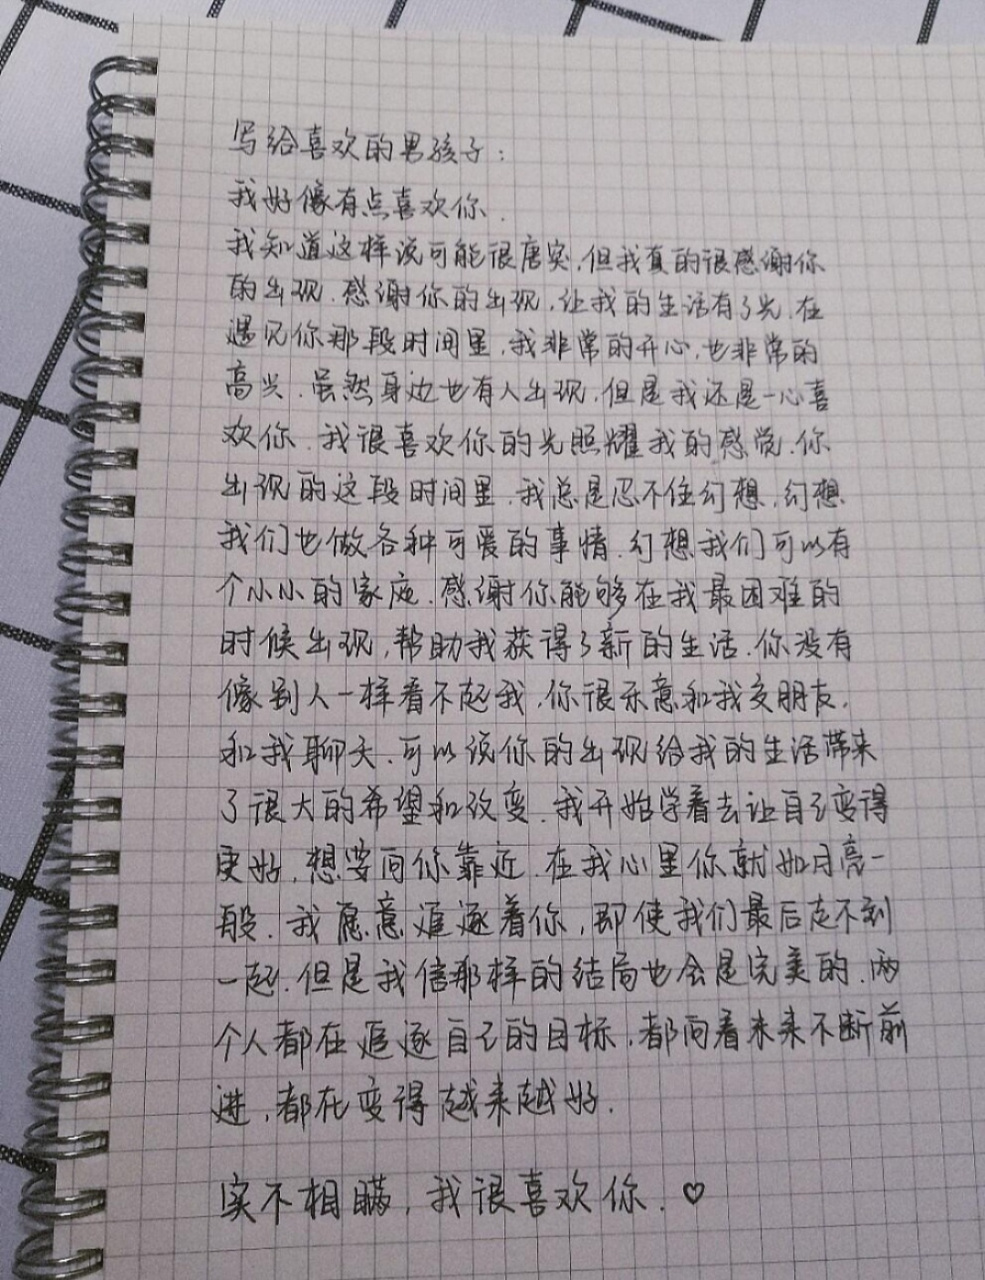 写给喜欢的男孩子：
我好像有点喜欢你.
我知道这样说可能很唐突,但我真的很感谢你
的出现.感谢你的出现,让我的生活有了光.在
遇见你那段时间里,我非常的开心,也非常的
高兴.虽然身边也有人出现,但是我还是一心喜
欢你.我很喜欢你的光照耀我的感觉.你
出现的这段时间里,我总是忍不住幻想,幻想
我们也做各种可爱的事情.幻想我们可以有
个小小的家庭.感谢你能够在我最困难的
时候出现,帮助我获得了新的生活.你没有
像别人一样看不起我,你很乐意和我交朋友,
和我聊天.可以说你的出现给我的生活带来
了很大的希望和改变.我开始学着去让自己变得
更好,想要向你靠近.在我心里你就如月亮一
般.我愿意追逐着你,即使我们最后走不到
一起.但是我信那样的结局也会是完美的.两
个人都在追逐自己的目标,都向着未来不断前
进,都在变得越来越好.
实不相瞒,我很喜欢你.♡